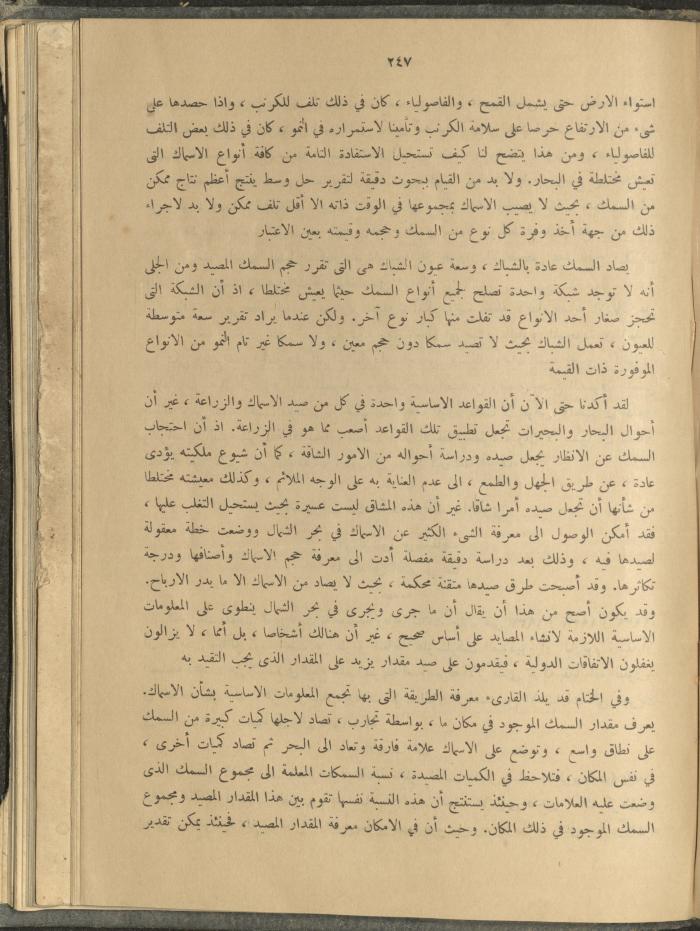 ٢٤٧
استواء الارض حتى يشمل القمح ، والفاصولياء ، كان في ذلك تلف للكرنب ، واذا حصدها على
شىء من الارتفاع حرصا على سلامة الكرنب وتأمينا لاستمراره في النمو ، كان في ذلك بعض التلف
للفاصولياء ، ومن هذا يتضح لنا كيف تستحيل الاستفادة التامة من كافة أنواع الاسماك التى
تعيش مختلطة في البحار. ولا بد من القيام ببحوث دقيقة لتقرير حل وسط ينتج أعظم نتاج ممكن
من السمك ، بحيث لا يصيب الاسماك بمجموعها في الوقت ذاته الا أقل تلف ممكن ولا بد لاجراء
ذلك من جهة أخذ وفرة كل نوع من السمك وحجمه وقيمته بعين الاعتبار
يصاد السمك عادة بالشباك ، وسعة عيون الشباك هى التى تقرر حجم السمك المصيد ومن الجلى
أنه لا توجد شبكة واحدة تصلح لجميع أنواع السمك حيثما يعيش مختلطا ، اذ أن الشبكة التى
تحجز صغار أحد الانواع قد تفلت منها كبار نوع آخر. ولكن عندما يراد تقرير سعة متوسطة
للعيون ، تعمل الشباك بحيث لا تصيد سمكا دون حجم معين ، ولا سمكا غير تام النمو من الانواع
الموفورة ذات القيمة
لقد أكدنا حتى الآن أن القواعد الاساسية واحدة في كل من صيد الاسماك والزراعة ، غير أن
أحوال البحار والبحيرات تجعل تطبيق تلك القواعد أصعب مما هو في الزراعة. اذ أن احتجاب
السمك عن الانظار يجعل صيده ودراسة أحواله من الامور الشاقة ، كما أن شيوع ملكيته يؤدى
عادة ، عن طريق الجهل والطمع ، الى عدم العناية به على الوجه الملائم ، وكذلك معيشته مختلطا
من شأنها أن تجعل صيده أمرا شاقا. غير أن هذه المشاق ليست عسيرة بحيث يستحيل التغلب عليها ،
فقد أمكن الوصول الى معرفة الشىء الكثير عن الاسماك في بحر الشمال ووضعت خطة معقولة
لصيدها فيه ، وذلك بعد دراسة دقيقة مفصلة أدت الى معرفة حجم الاسماك وأصنافها ودرجة
تكاثرها. وقد أصبحت طرق صيدها متقنة محكمة ، بحيث لا يصاد من الاسماك الا ما يدر الارباح.
وقد يكون أصح من هذا أن يقال أن ما جرى ويجرى في بحر الشمال ينطوى على المعلومات
الاساسية اللازمة لانشاء المصايد على أساس صحيح ، غير أن هنالك أشخاصا ، بل أمما ، لا يزالون
يغفلون الاتفاقات الدولية ، فيقدمون على صيد مقدار يزيد على المقدار الذى يجب التقيد به
وفي الختام قد يلذ القارىء معرفة الطريقة التى بها تجمع المعلومات الاساسية بشأن الاسماك.
يعرف مقدار السمك الموجود في مكان ما ، بواسطة تجارب ، تصاد لاجلها كميات كبيرة من السمك
على نطاق واسع ، وتوضع على الاسماك علامة فارقة وتعاد الى البحر ثم تصاد كميات أخرى ،
في نفس المكان ، فتلاحظ في الكميات المصيدة ، نسبة السمكات المعلمة الى مجموع السمك الذى
وضعت عليه العلامات ، وحينئذ يستنتج أن هذه النسبة نفسها تقوم بين هذا المقدار المصيد ومجموع
السمك الموجود في ذلك المكان. وحيث أن في الامكان معرفة المقدار المصيد ، فحينئذ يمكن تقدير